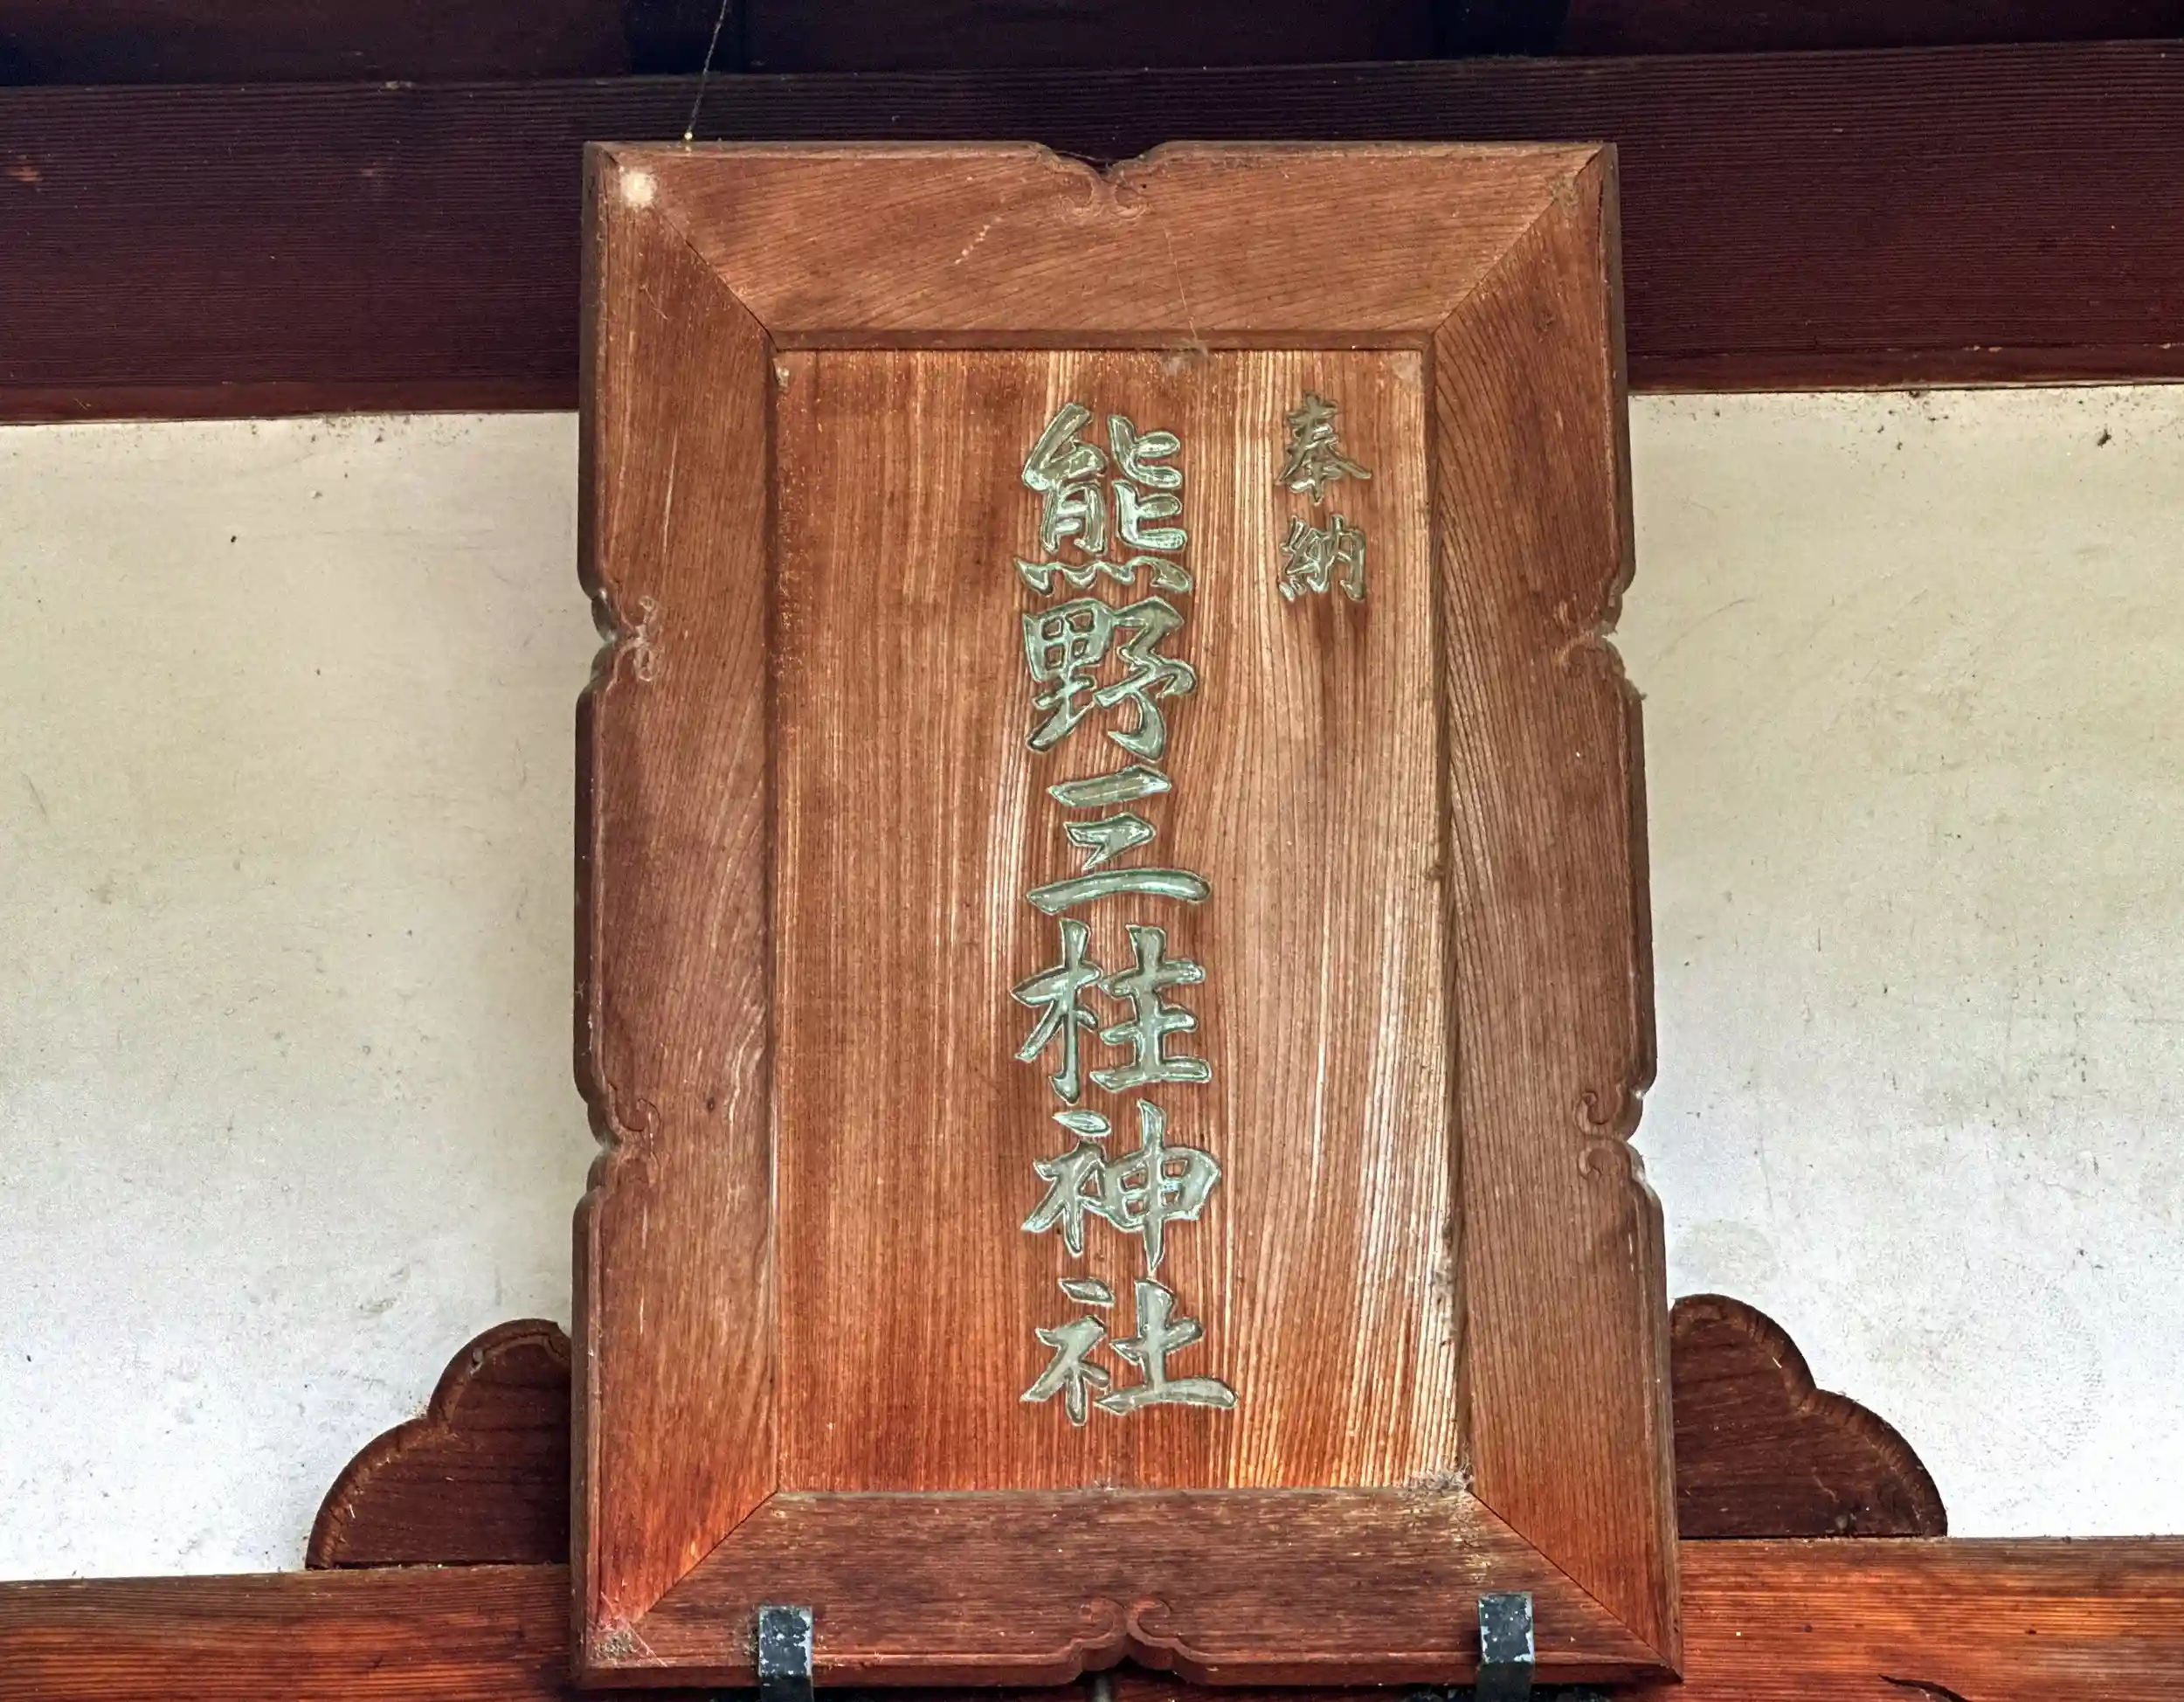 奉納
熊野三桂神社